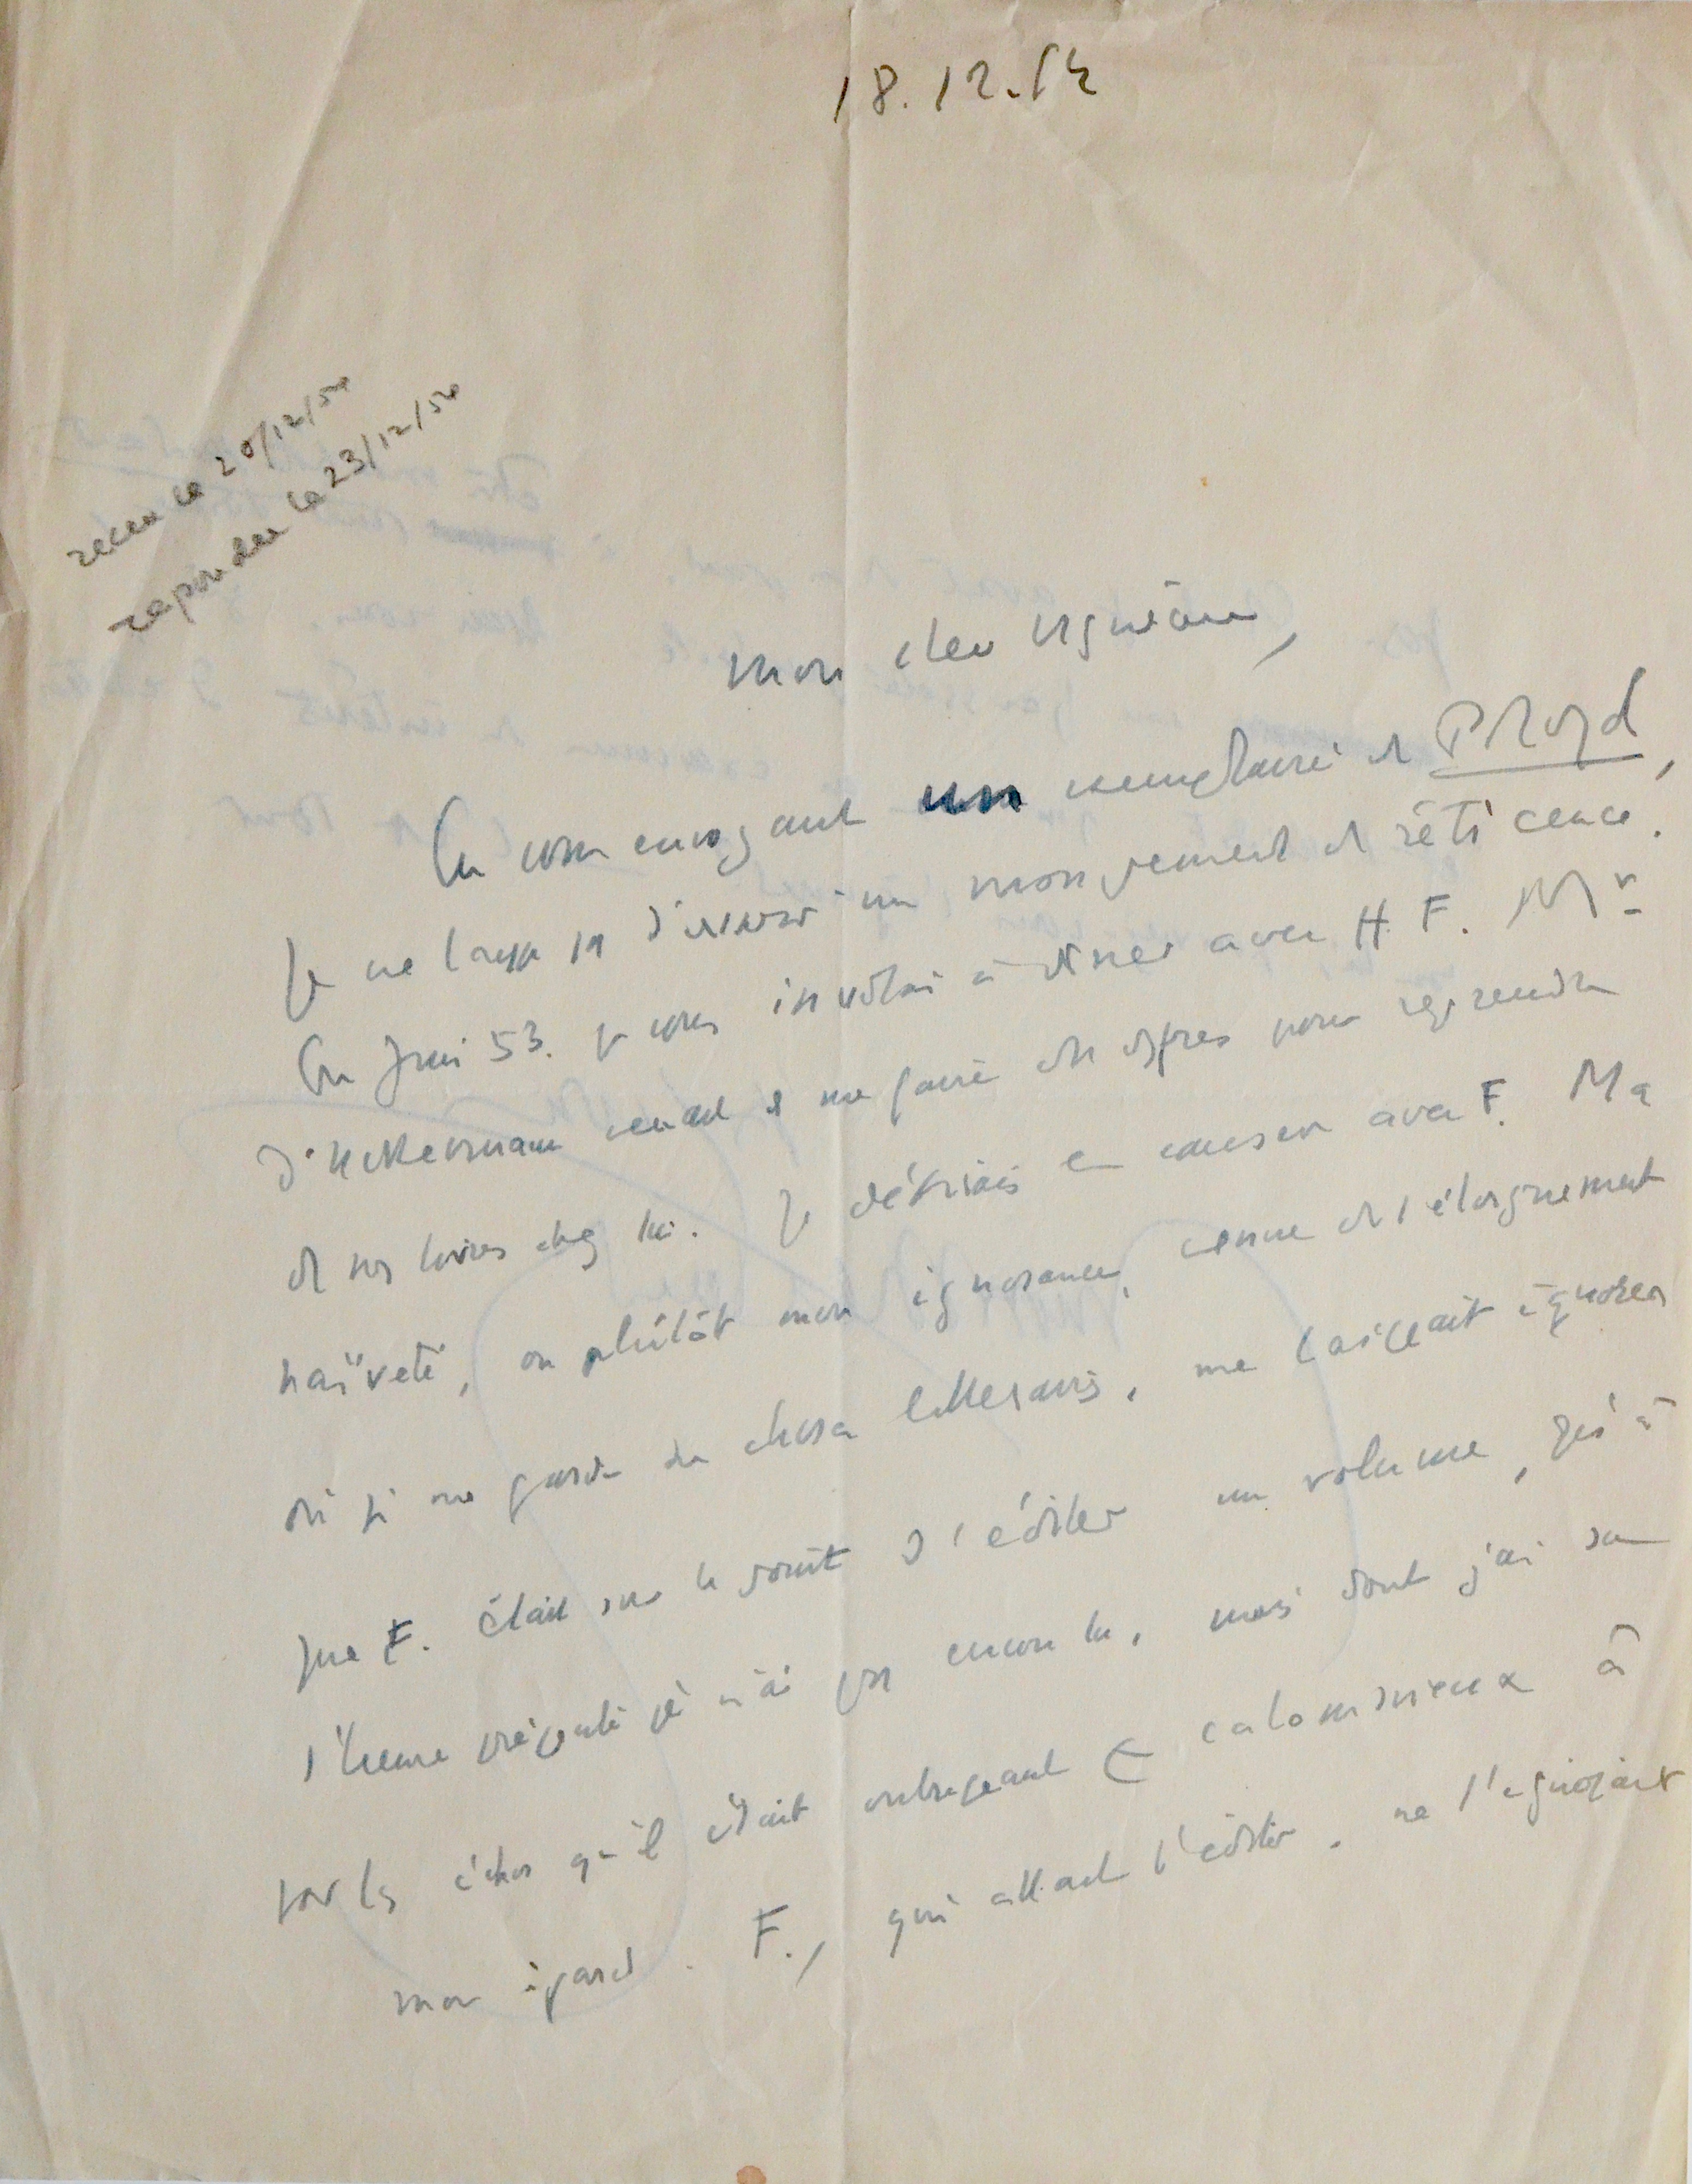 18.12.54
reçu le 20/12/54
repondu le 23/12/54
Mon cher
En vous envoyant un exemplaire de Ployd,
je ne laisse pas d'avoir un mouvement de réticence.
En Juin 53. je vous invitai à dîner avec H. F. Mr
d'Uckermann venait de me faire des offres pour reprendre
de nos livres chez lui. Je désirais en causer avec F. Ma
naïveté, ou plutôt mon ignorance, venue de l'éloignement
où je me garde des choses littéraires, me laissait ignorer
que F. était sur le point d'éditer un volume, qu'à
l'heure présente je n'ai pas encore lu, mais dont j'ai su
par les échos qu'il était outrageant et calomnieux à
mon égard. F., qui allait l'éditer, ne l'ignorait